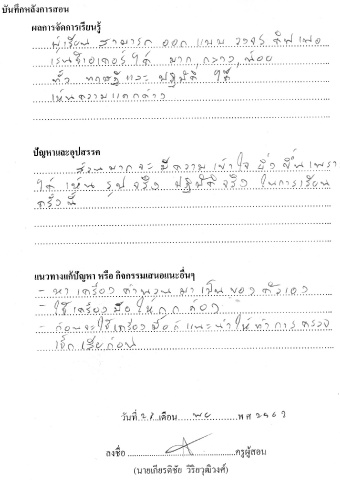 บันทึกหลังการสอน
ผลการจัดการเรียนรู้
ผู้เรียน สามารถ ออก แบบ วงจร ดิฟเฟอ
เรนชิเอเตอร์ ได้ มาก, กลาง, น้อย
ทั้ง ทฤษฎี และ ปฏิบัติ ได้
เห็นความแตกต่าง
ปัญหาและอุปสรรค
ส่วน มาก จะ มี ความ เข้าใจ ยิ่ง ขึ้น เพราะ
ได้ เห็น รูป จริง ปฏิบัติ จริง ในการ เรียน
ครั้งนี้
แนวทางแก้ปัญหา หรือ กิจกรรมเสนอแนะอื่นๆ
- หา เครื่อง คำนวน มา เป็น ของ ตัวเอง
- ใช้ เครื่อง มือ ให้ ถูก ต้อง
- ก่อนจะใช้เครื่องมือก็ แนะนำ ให้ ทำ การ ตรวจ
เช็ค เสียก่อน
วันที่ 28 เดือน พย พ ศ
ลงชื่อ ครูผู้สอน
(นายเกียรติชัย วิริยวุฒิวงศ์)